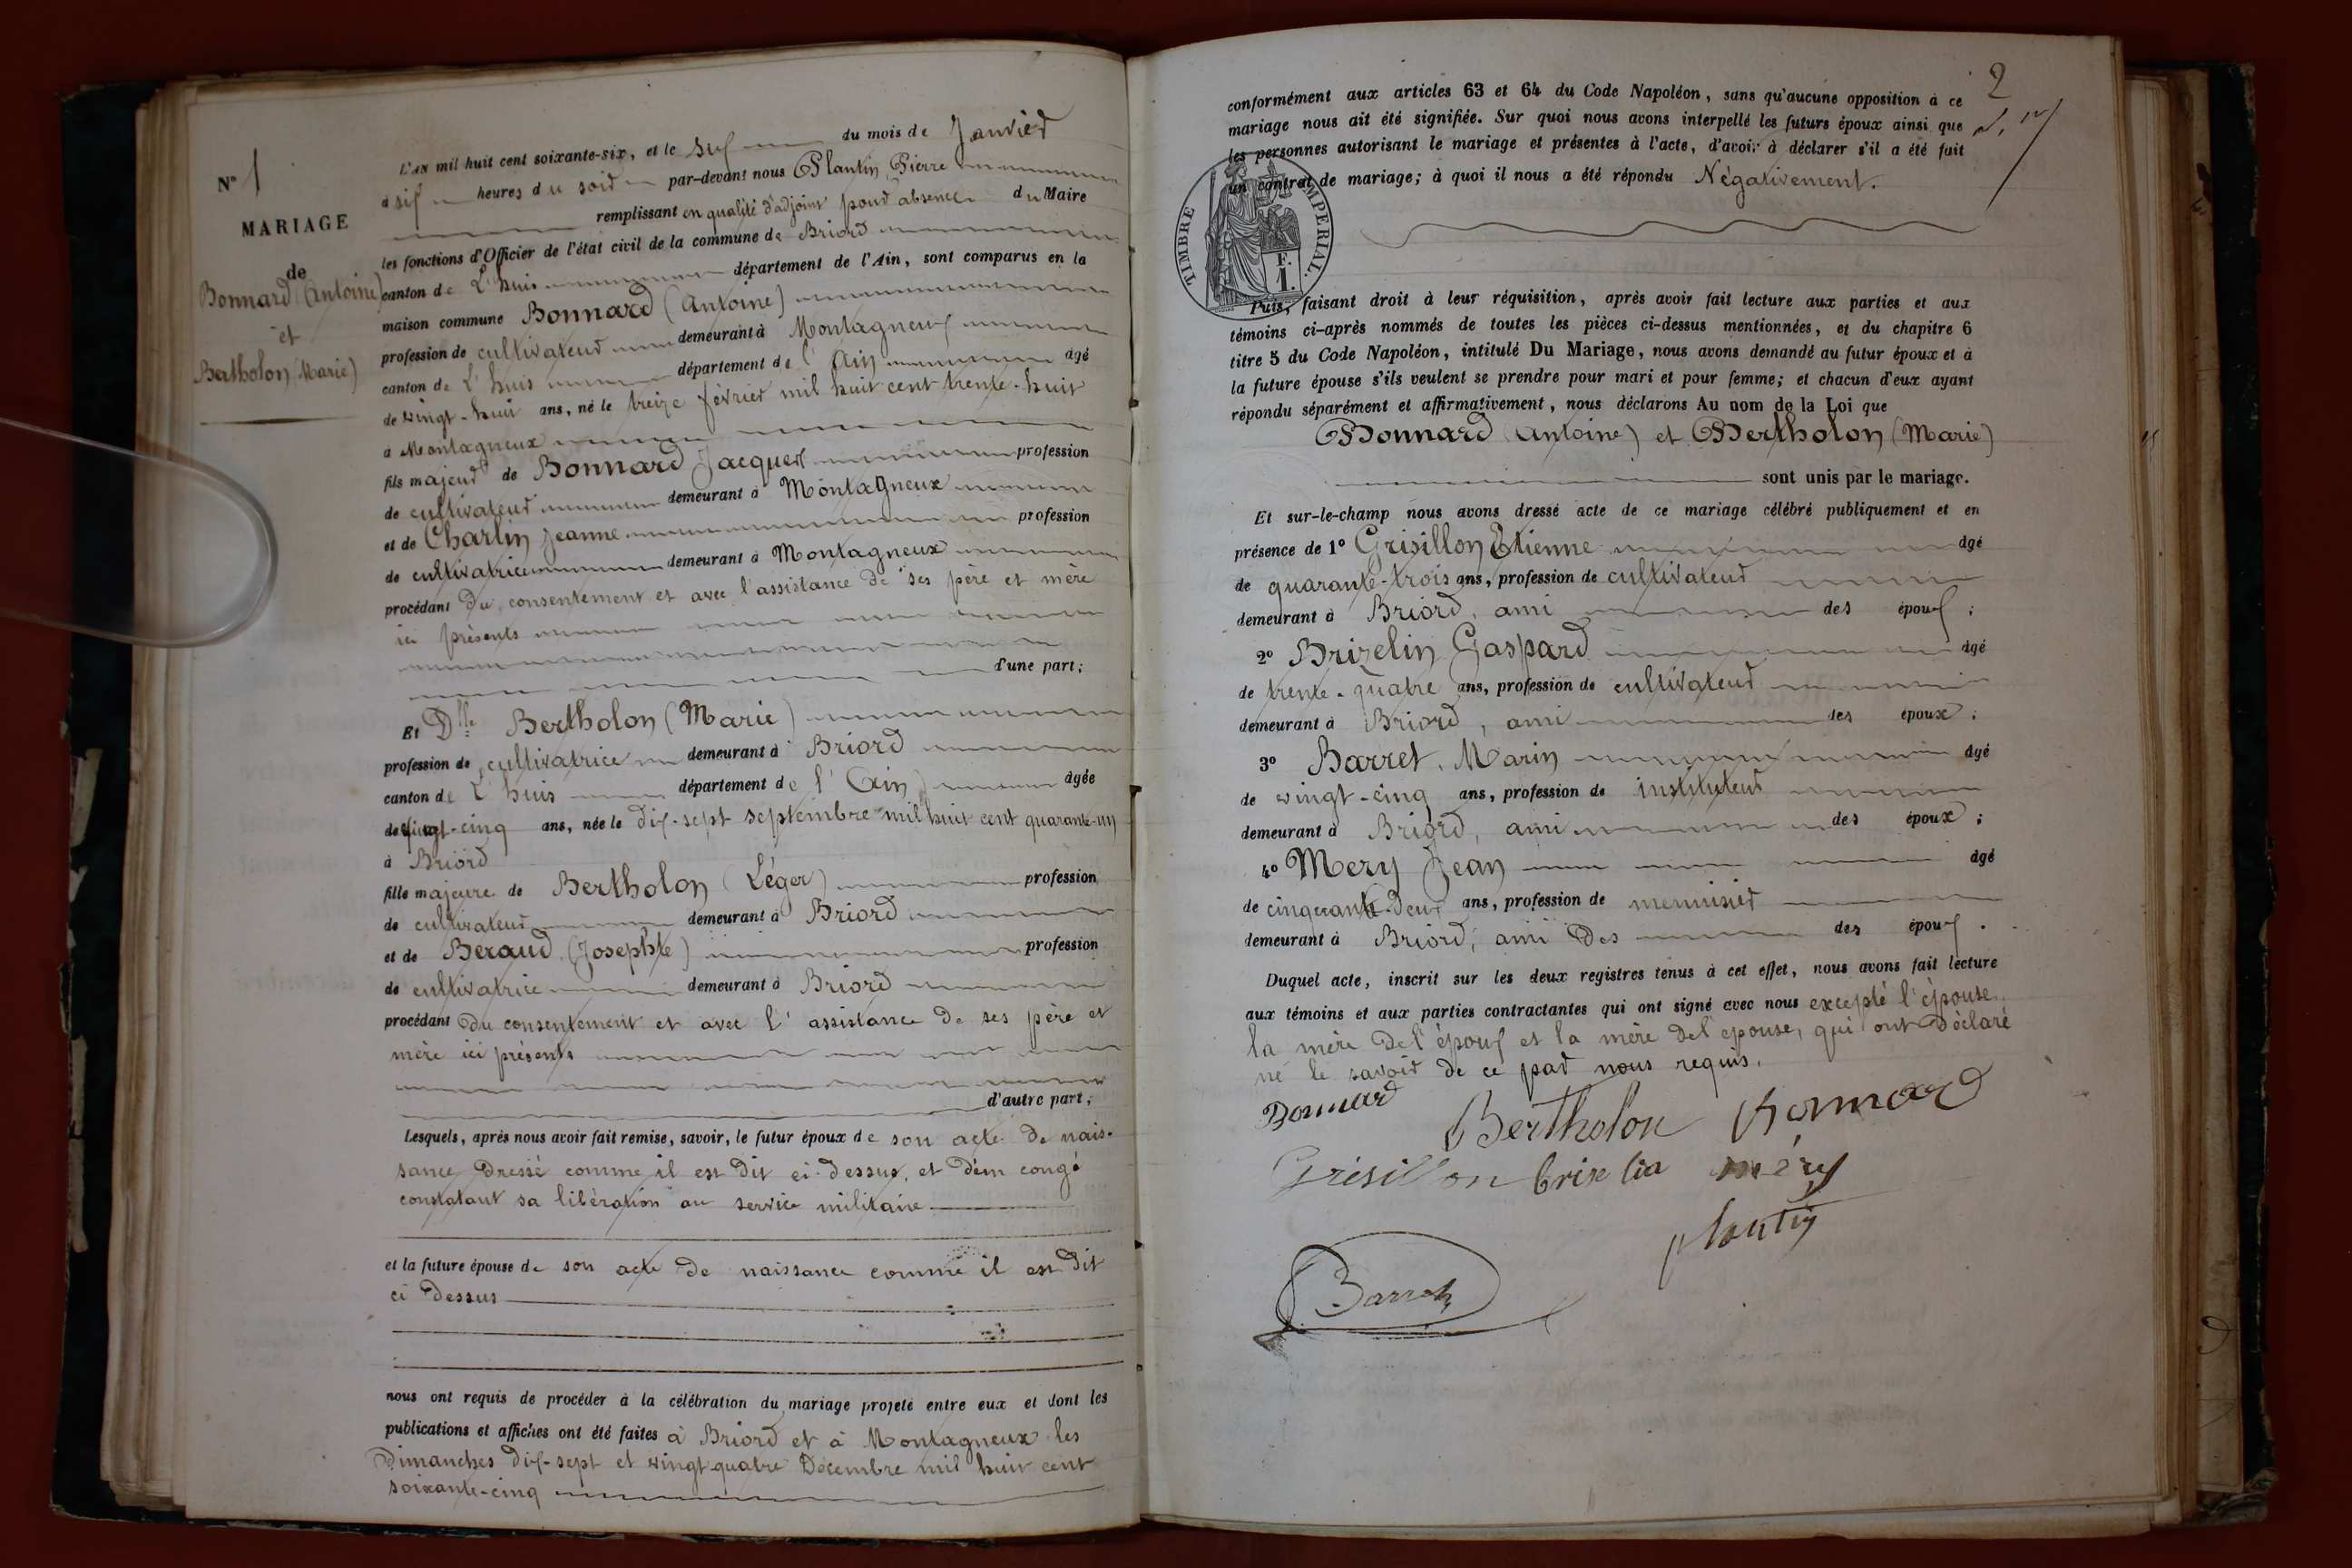 N° 1
MARIAGE
de
Bonnard (Antoine)
et
Bertholon (Marie)
L'AN mil huit cent soixante-six, et le six du mois de Janvier
à six heures du soir par-devant nous Plantin, Pierre
remplissant en qualité d'adjoint pour absence du Maire
les fonctions d'Officier de l'état civil de la commune de Briord
canton de L'huis département de l'Ain, sont comparus en la
maison commune Bonnard (Antoine)
profession de cultivateur demeurant à Montagneux
canton de L'huis département de l'Ain âgé
de vingt-huit ans, né le treize février mil huit cent trente-huit
à Montagneux
fils majeur de Bonnard Jacques profession
de cultivateur demeurant à Montagneux
et de Charlin Jeanne profession
de cultivatrice demeurant à Montagneux
procédant du consentement et avec l'assistance de ses père et mère
ici présents
d'une part;
Et Dlle Bertholon (Marie)
profession de cultivatrice demeurant à Briord
canton de L'huis département de l'Ain âgée
de vingt-cinq ans, née le dix-sept septembre mil huit cent quarante-un
à Briord
fille majeure de Bertholon (Léger) profession
de cultivateur demeurant à Briord
et de Beraud (Josephte) profession
de cultivatrice demeurant à Briord
procédant du consentement et avec l'assistance de ses père et
mère ici présents
d'autre part;
Lesquels, après nous avoir fait remise, savoir, le futur époux de son acte de nais-
sance dressé comme il est dit ci-dessus, et d'un congé
constatant sa libération au service militaire
et la future épouse de son acte de naissance comme il est dit
ci dessus
nous ont requis de procéder à la célébration du mariage projeté entre eux et dont les
publications et affiches ont été faites à Briord et à Montagneux les
Dimanches dix-sept et vingt quatre Décembre mil huit cent
soixante-cinq
2
conformément aux articles 63 et 64 du Code Napoléon, sans qu'aucune opposition à ce
mariage nous ait été signifiée. Sur quoi nous avons interpellé les futurs époux ainsi que
les personnes autorisant le mariage et présentes à l'acte, d'avoir à déclarer s'il a été fait
un contrat de mariage; à quoi il nous a été répondu Négativement.
TIMBRE IMPERIAL.
F.
1.
Puis, faisant droit à leur réquisition, après avoir fait lecture aux parties et aux
témoins ci-après nommés de toutes les pièces ci-dessus mentionnées, et du chapitre 6
titre 5 du Code Napoléon, intitulé Du Mariage, nous avons demandé au futur époux et à
la future épouse s'ils veulent se prendre pour mari et pour femme; et chacun d'eux ayant
répondu séparément et affirmativement, nous déclarons Au nom de la Loi que
Bonnard (Antoine) et Bertholon (Marie)
sont unis par le mariage.
Et sur-le-champ nous avons dressé acte de ce mariage célébré publiquement et en
présence de 1° Grisillon Etienne âgé
de quarante-trois ans, profession de cultivateur
demeurant à Briord, ami des époux;
2° Brizelin Gaspard âgé
de trente-quatre ans, profession de cultivateur
demeurant à Briord, ami des époux;
3° Barret, Marin âgé
de vingt-cinq ans, profession de instituteur
demeurant à Briord, ami des époux;
4° Mery Jean âgé
de cinquante-deux ans, profession de menuisier
demeurant à Briord, ami des des époux.
Duquel acte, inscrit sur les deux registres tenus à cet effet, nous avons fait lecture
aux témoins et aux parties contractantes qui ont signé avec nous excepté l'épouse,
la mère de l'époux et la mère de l'épouse, qui ont déclaré
ne le savoir de ce par nous requis.
Bonnard Bertholon Bonnard
Grésillon brixelia méry
plantin
Barret